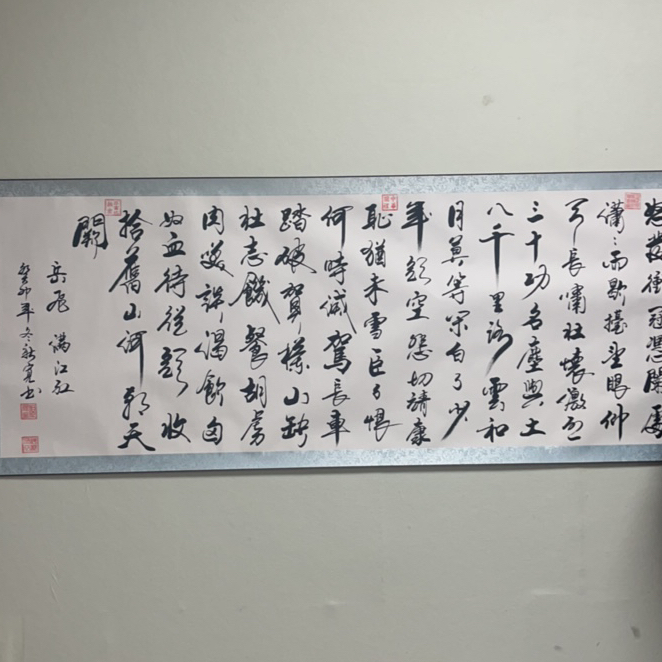 怒髮衝冠憑闌處
瀟〻雨歇擡望眼仰
天長嘯壯懷激烈
三十功名塵與土
八千里路雲和
月莫等閑白了少
年頭空悲切靖康
恥猶未雪臣子恨
何時滅駕長車
踏破賀蘭山缺
壯志饑餐胡虜
肉笑談渴飲匈
奴血待從頭收
拾舊山河朝天
闕
岳飛 滿江紅
癸卯年冬 書